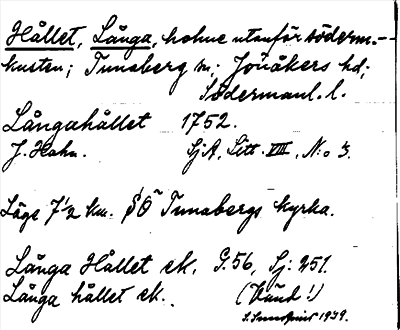 Hållet, Långa, holme utanför söderm.-
kusten; Tunaberg sn; Jönåkers hd;
Södermanl. l.
Långahållet 1752.
J. Hahn. SjA, Litt. VIII, N:o 3.
Läge 7 1/2 km. SÖ Tunabergs kyrka.
Långa Hållet ek. G. 56, Sj: 251.
Långa hållet ek. (Vänd!)
1939.